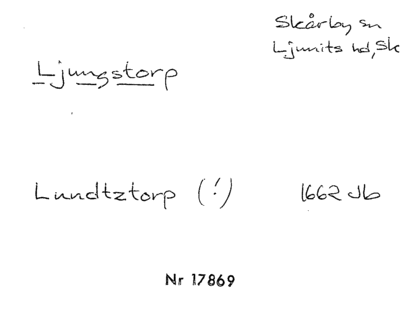 Skårby sn
Ljunits hd, Sk
Ljungstorp
Lundtztorp (!)
1662 Jb
Nr 17869